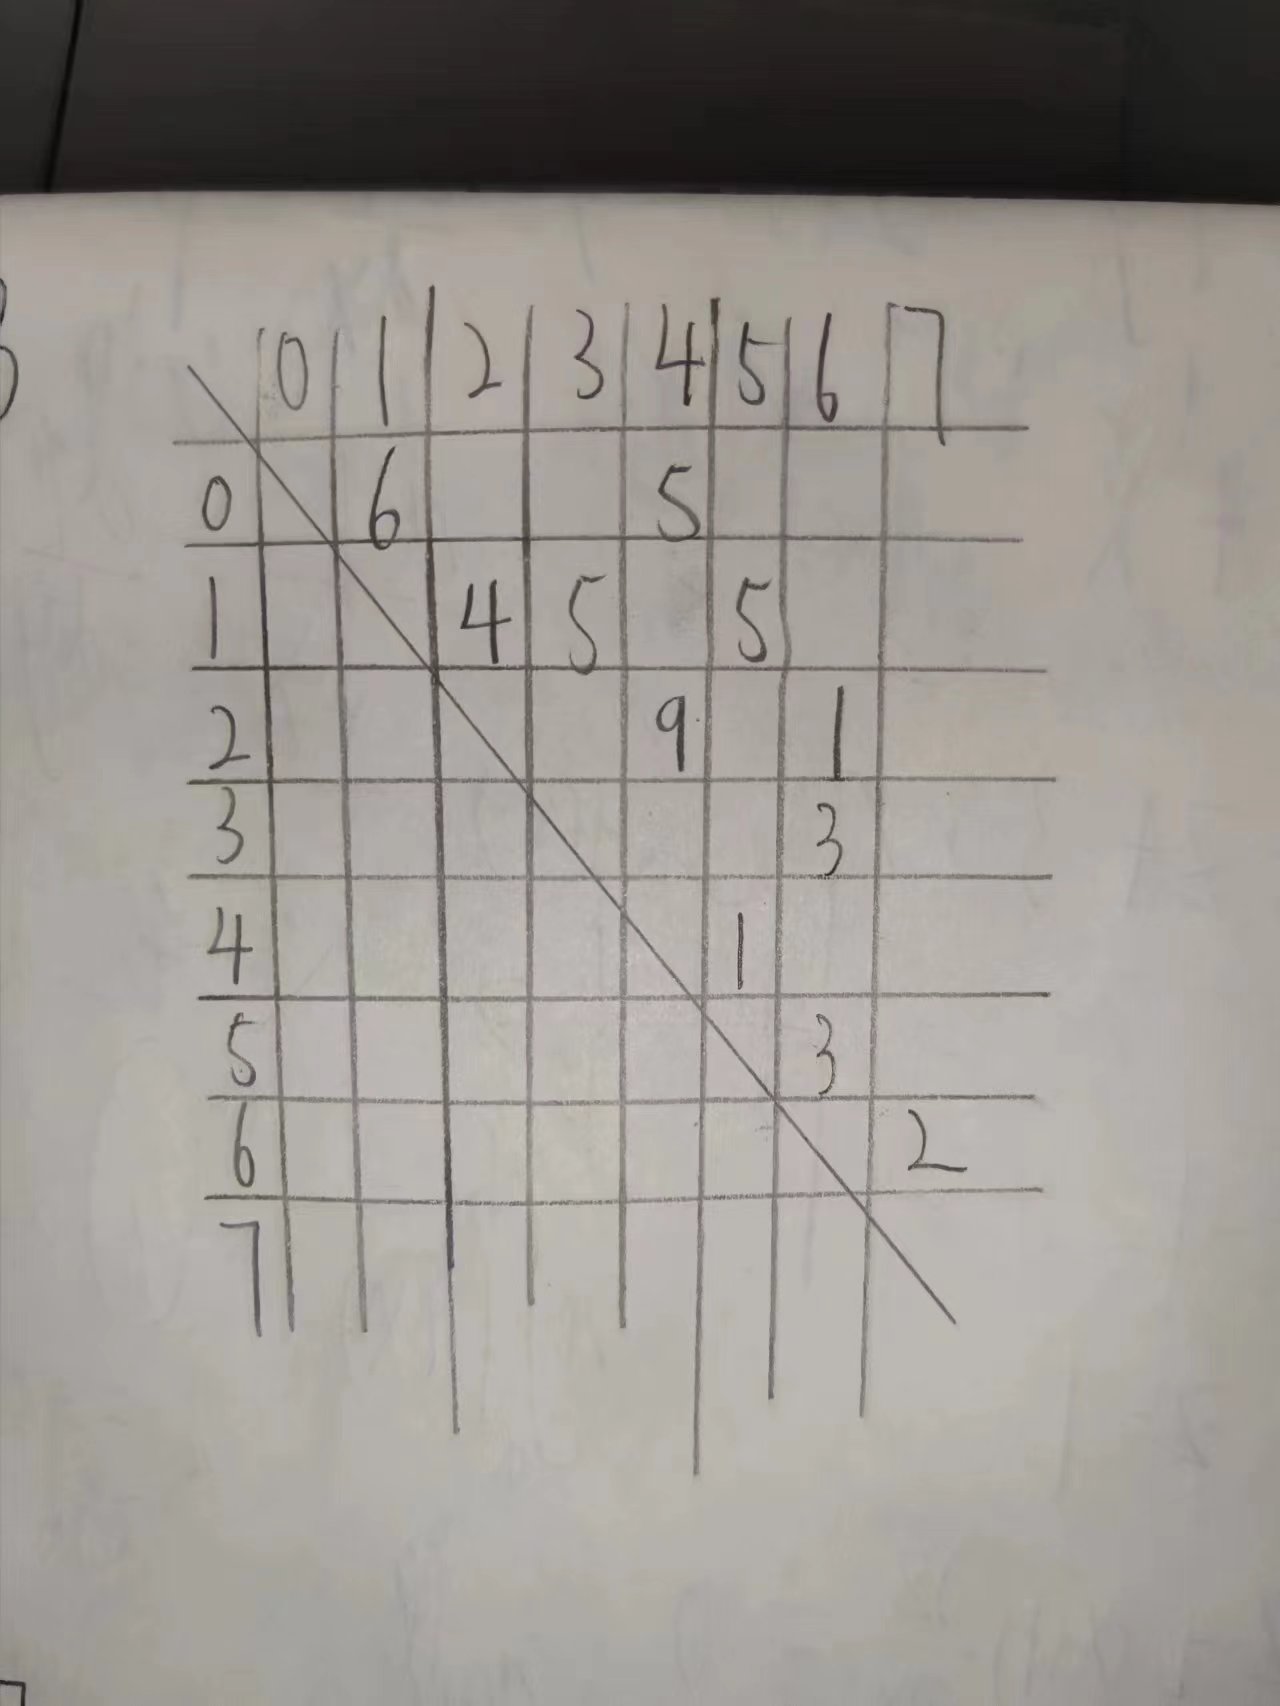 0 1 2 3 4 5 6 7
0 6 5
1 4 5 5
2 9 1
3 3
4 1
5 3
6 2
7